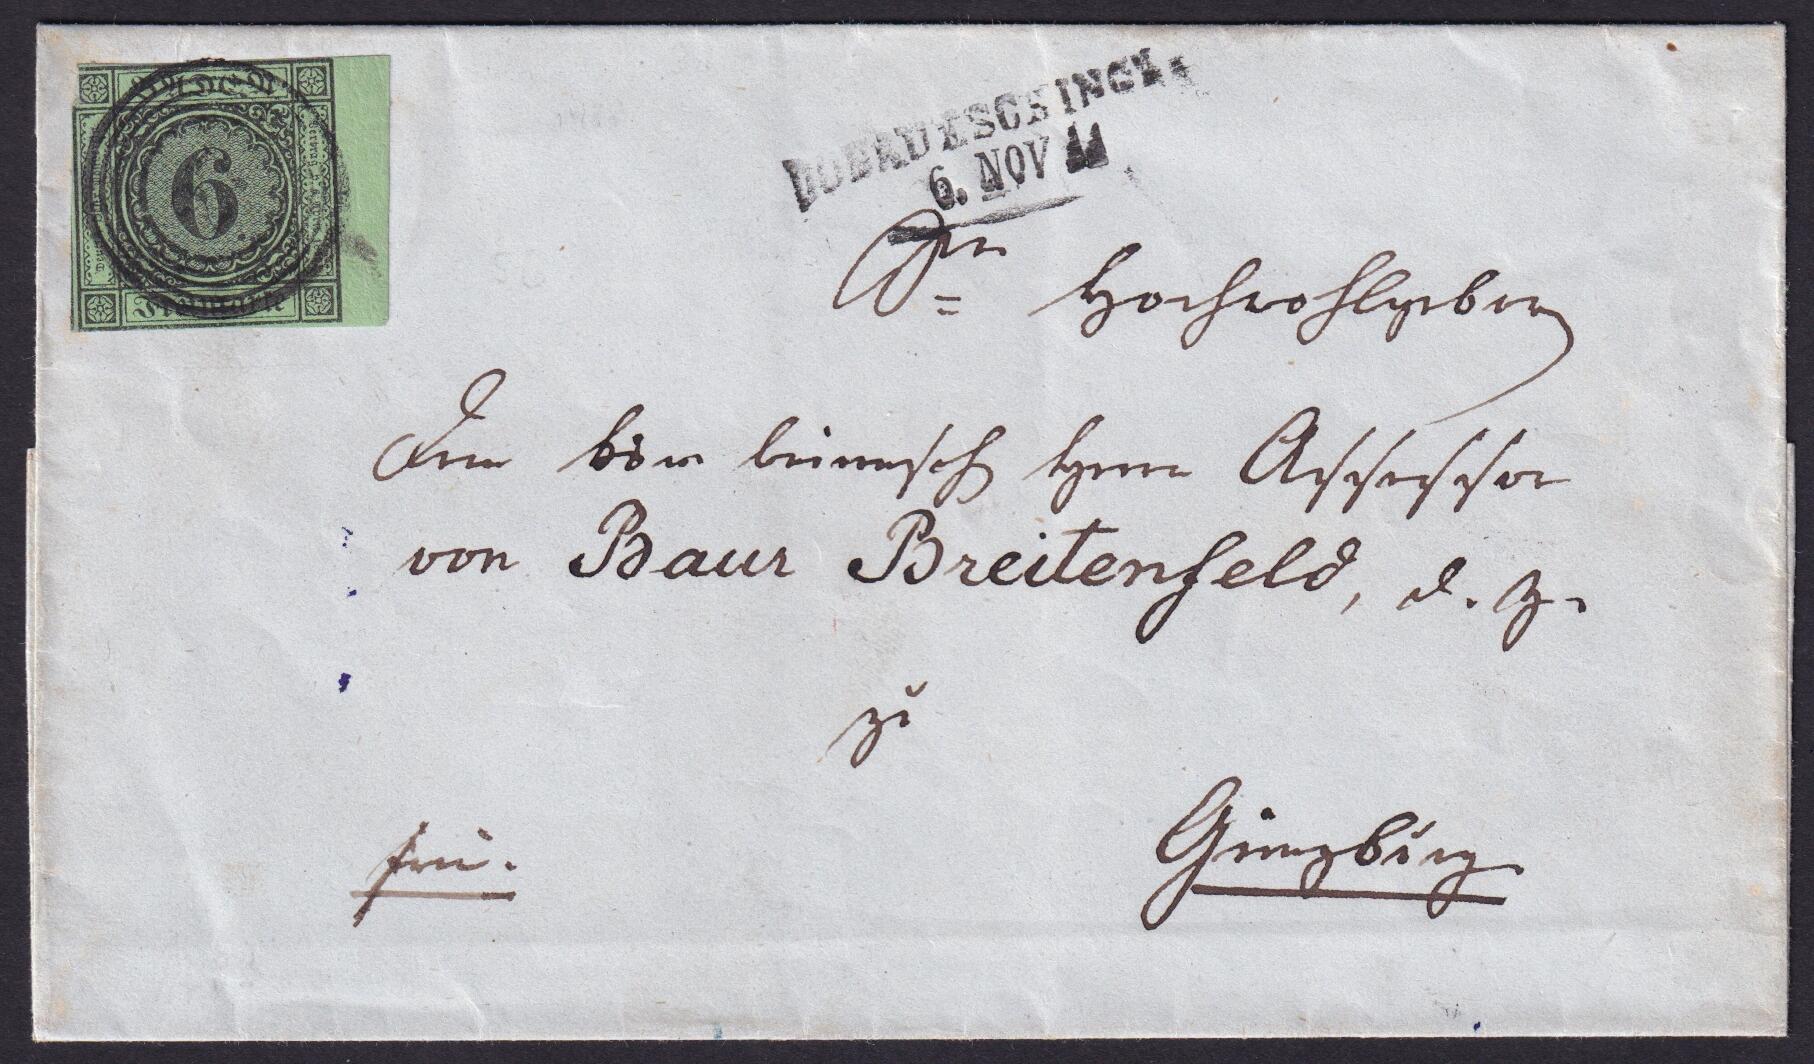 BADEN
6
Freimarke
DONAUESCHINGEN
6. NOV
Sr. Hochwohlgeboren
Dem k. bayerisch Herrn Assessor
von Baur Breitenfeld, d. Z.
zu
Günzburg
frei.